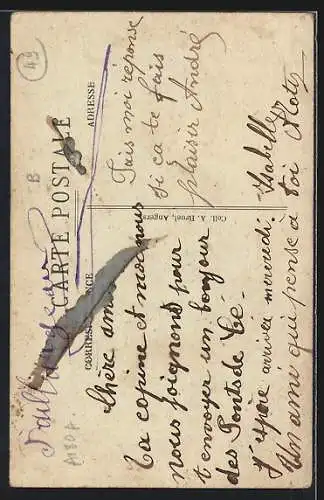 49
B
CARTE POSTALE
CORRESPONDANCE
ADRESSE
Coll. A. Bruel, Angers
Chère amie
Ta copine et moi nous
nous joignons pour
t'envoyer un bonjour
des Ponts de Cé.
J'espère arriver mercredi.
Un ami qui pense à toi
Isabelle
Fais moi réponse
si ca te fais
plaisir André